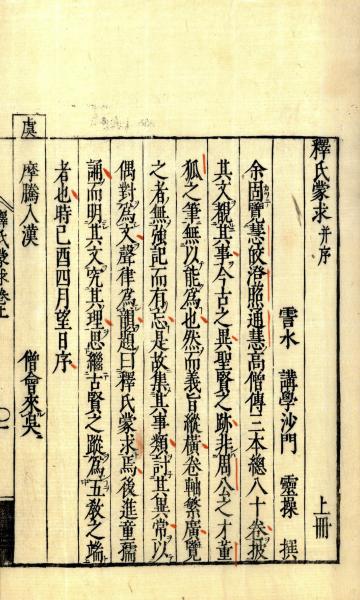 釋氏蒙求并序 上冊
霅水 講學沙門 靈操 撰
余固覽慧皎澄照通慧高僧傳三本總八十卷披
其文覩其事今古之異聖賢之跡非周公之才董
狐之筆無以能爲也然而義旨縱橫卷軸繁廣覽
之者無強記而有忘是故集其事類討其異常以
偶對爲文聲律爲韻題曰釋氏蒙求焉後進童孺
誦而明其文究其理思繼古賢之蹤爲五教之端
者也時己酉四月望日序
摩騰入漢 僧會來吳
虞
釋氏蒙求卷上